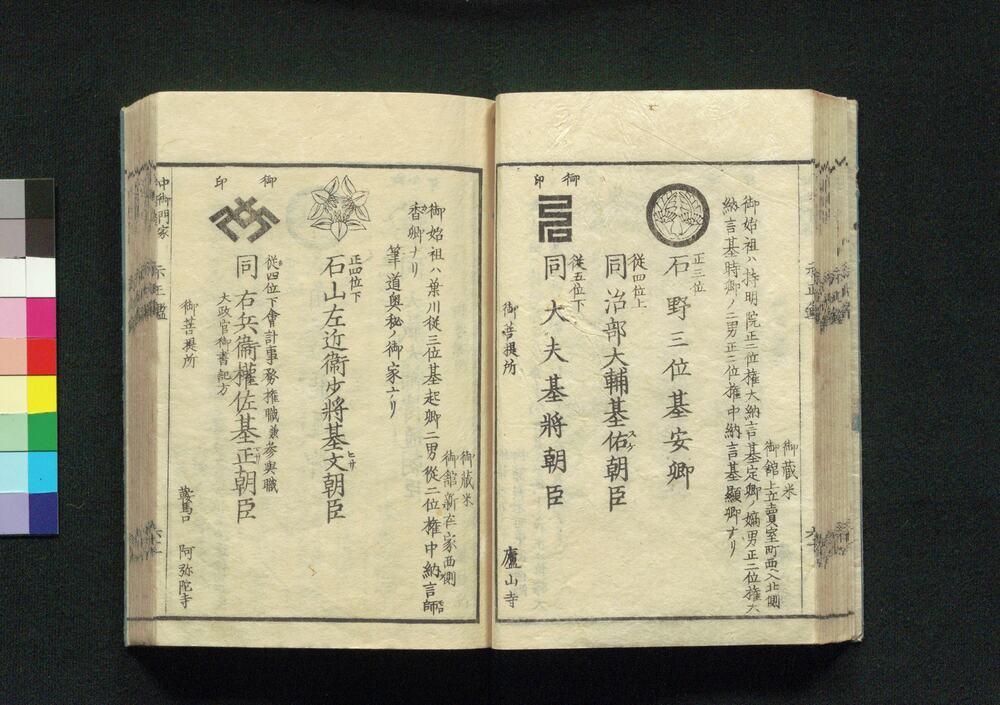 御蔵米
御館上立賣室町西入北側
御始祖ハ持明院正二位権大納言基定卿ノ嫡男正二位権大
納言基時卿ノ二男正二位権中納言基顯卿ナリ
正三位
石野三位基安卿
從四位上
同治部大輔基佑朝臣
スケ
御印
從五位下
同大夫基將朝臣
御菩提所
廬山寺
御蔵米
御館新在家西側
御始祖ハ葉川從三位基起卿二男從二位権中納言師
香卿ナリ
筆道奥秘ノ御家ナリ
正四位下
石山左近衞少將基文朝臣
御印
從四位下會計事務権職兼参與職
同右兵衞權佐基正朝臣
大政官御書記方
御菩提所
鞍馬口
阿弥陀寺
中御門家